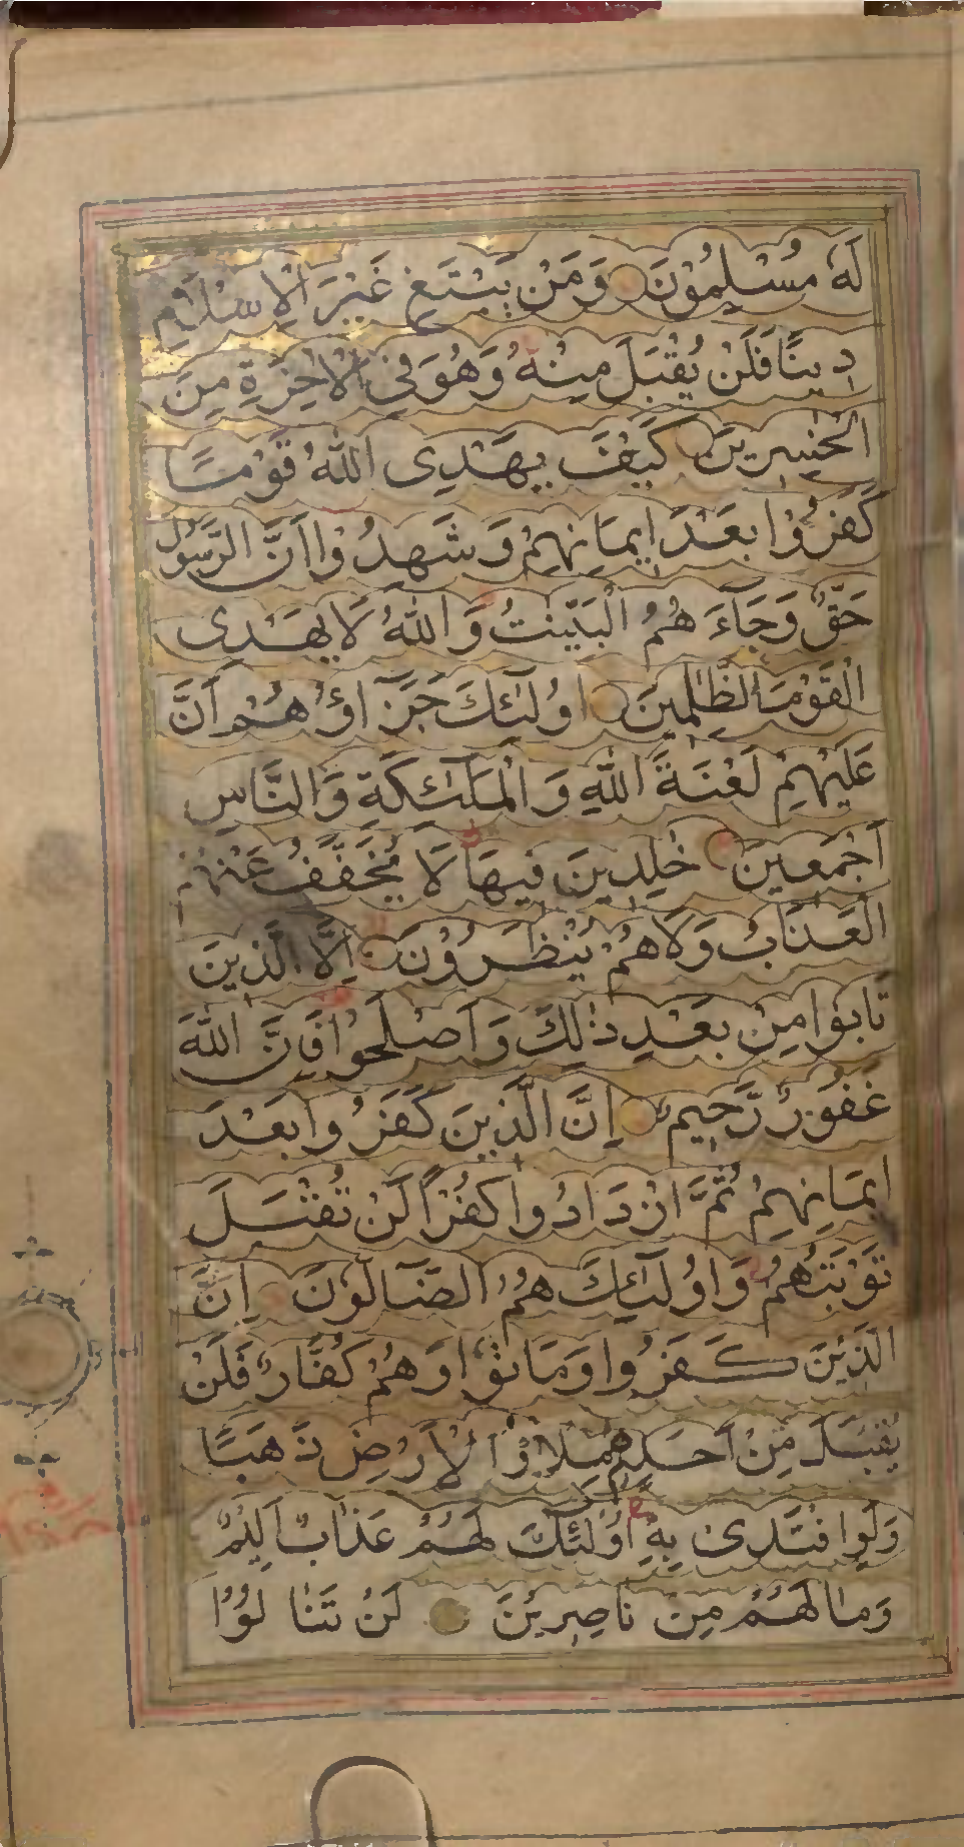 لَهٗ مُسْلِمُوْنَ وَمَنْ يَبْتَغِ غَيْرَ الْاِسْلَامِ
دِينًا فَلَنْ يُقْبَلَ مِنْهُ وَهُوَ فِى الْاٰخِرَةِ مِنَ
الْخٰسِرِينَ كَيْفَ يَهْدِى اللّٰهُ قَوْمًا
كَفَرُوْا بَعْدَ اِيمَانِهِمْ وَشَهِدُوْا اَنَّ الرَّسُولَ
حَقٌّ وَجَآءَهُمُ الْبَيِّنٰتُ وَاللّٰهُ لَا يَهْدِى
الْقَوْمَ الظّٰلِمِينَ اُولٰئِكَ جَزَآؤُهُمْ اَنَّ
عَلَيْهِمْ لَعْنَةَ اللّٰهِ وَالْمَلٰئِكَةِ وَالنَّاسِ
اَجْمَعِينَ خٰلِدِينَ فِيهَا لَا يُخَفَّفُ عَنْهُمُ
الْعَذَابُ وَلَا هُمْ يُنْظَرُوْنَ اِلَّا الَّذِينَ
تَابُوْا مِنْ بَعْدِ ذٰلِكَ وَاَصْلَحُوْا فَاِنَّ اللّٰهَ
غَفُوْرٌ رَّحِيمٌ اِنَّ الَّذِينَ كَفَرُوا بَعْدَ
ايمَانِهِمْ ثُمَّ ازْدَادُوا كُفْرًا لَنْ تُقْبَلَ
تَوْبَتُهُمْ وَاُولٰئِكَ هُمُ الضَّآلُّوْنَ اِنَّ
الَّذِيْنَ كَفَرُوا وَمَاتُوْا وَهُمْ كُفَّارٌ فَلَنْ
يُقْبَلَ مِنْ اَحَدِهِمْ مِلْءُ الْاَرْضِ ذَهَبًا
وَلَوِ افْتَدٰى بِهٖ اُولٰئِكَ لَهُمْ عَذَابٌ اَلِيْمٌ
وَمَا لَهُمْ مِنْ نَاصِرِيْنَ لَنْ تَنَالُوْا